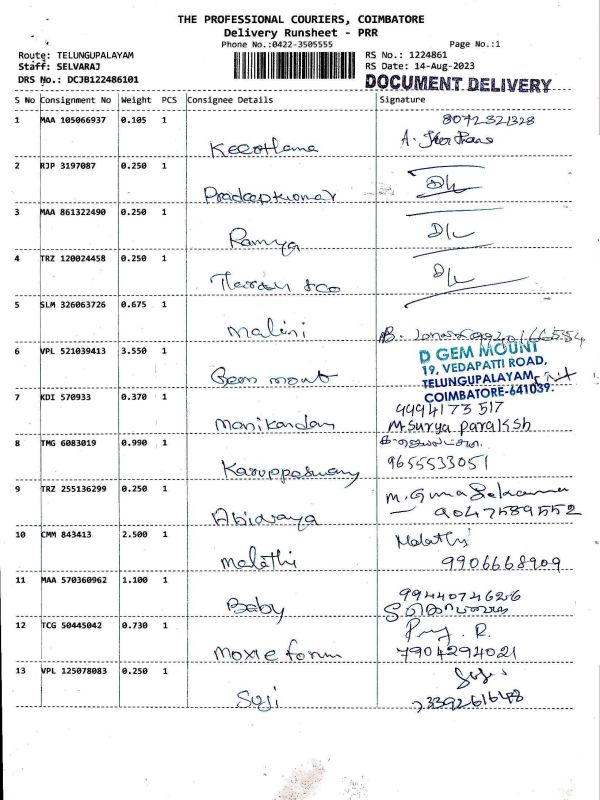 THE PROFESSIONAL COURIERS, COIMBATORE
Delivery Runsheet - PRR
Phone No.:0422-3505555
Page No.:1
Route: TELUNGUPALAYAM
RS No.: 1224861
Staff: SELVARAJ
RS Date: 14-Aug-2023
DRS No.: DCJB122486101
DOCUMENT DELIVERY
S No Consignment No Weight PCS Consignee Details Signature
1 MAA 105066937 0.105 1
8072321328
Keerthana
2 RJP 3197087 0.250 1
Pradeepkumar
3 MAA 861322490 0.250 1
Ramya
4 TRZ 120024458 0.250 1
& co
5 SLM 326063726 0.675 1
Malini
6 VPL 521039413 3.550 1
D GEM MOUNT
19, VEDAPATTI ROAD,
TELUNGUPALAYAM
COIMBATORE-641039.
Gem mont
7 KDI 570933 0.370 1
9494173517
Manikandan
M. Surya Paraksh
8 TMG 6083019 0.990 1
9655533051
Karuppaswamy
9 TRZ 255136299 0.250 1
9047589552
Abinaya
10 CMM 843413 2.500 1
Malathi
Malathi 9906668909
11 MAA 570360962 1.100 1
9944074626
Baby
12 TCG 50445042 0.730 1
R.
Moxie forum 7904294021
13 VPL 125078083 0.250 1
Suji